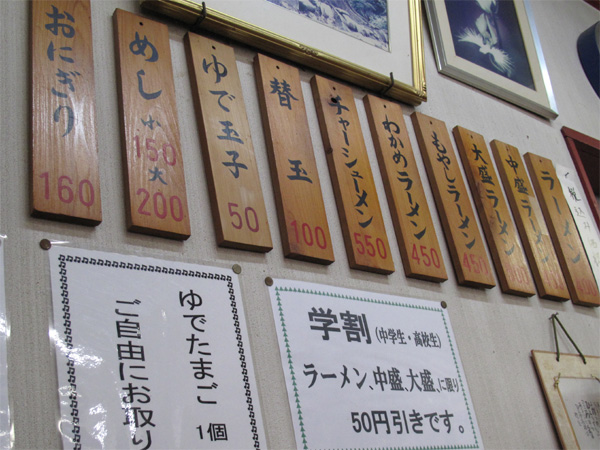 おにぎり
160
めし
小
150
大
200
ゆで玉子
50
替玉
100
チャーシューメン
550
わかめラーメン
450
もやしラーメン
450
大盛ラーメン
中盛ラーメン
ラーメン
ゆでたまご
1個
ご自由にお取り
学割(中学生・高校生)
ラーメン、中盛、大盛、に限り
50円引きです。